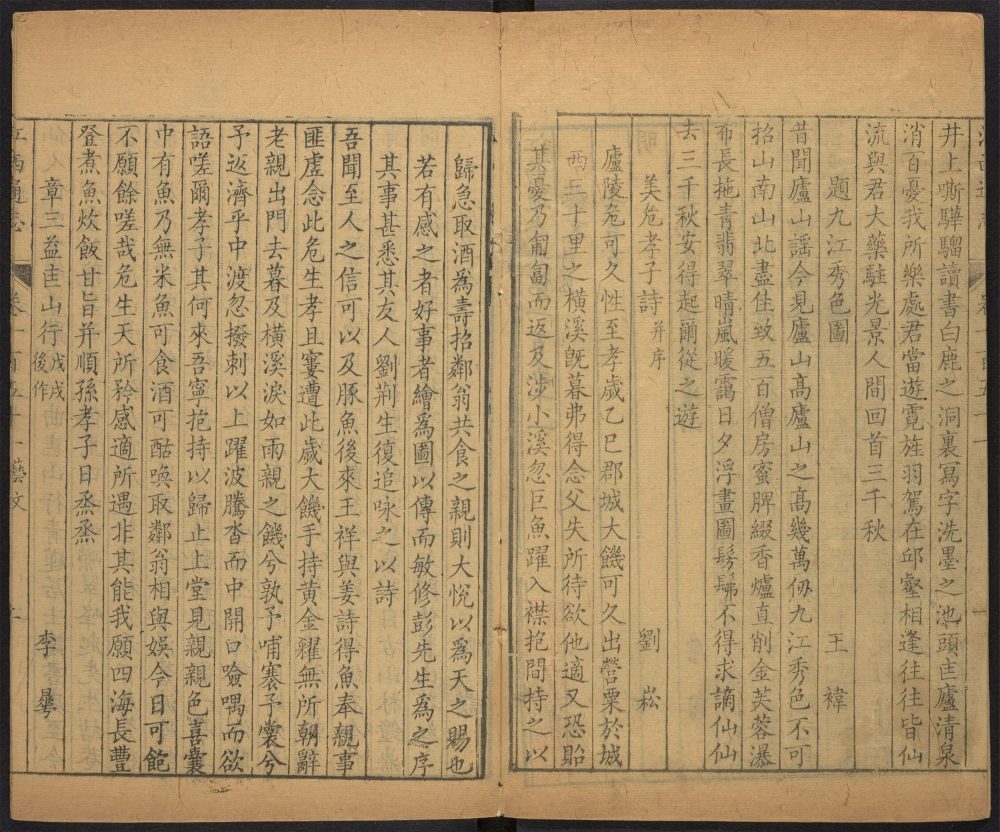 井上嘶驊騮讀書白鹿之洞裏寫字洗墨之池頭匡廬清泉
消百憂我所樂處君當遊霓旌羽駕在邱壑相逢往往皆仙
流與君大藥駐光景人間回首三千秋
題九江秀色圖 王禕
昔聞廬山謠今見廬山高廬山之高幾萬仞九江秀色不可
招山南山北盡佳致五百僧房蜜脾綴香爐直削金芙蓉瀑
布長拖青翡翠晴嵐暖靄日夕浮畫圖髣髴不得求謫仙仙
去三千秋安得起爾從之遊
明
美危孝子詩并序 劉崧
廬陵危可久性至孝歲乙巳郡城大饑可久出營粟於城
西三十里之橫溪旣暮弗得念父失所待欲他適又恐貽
其憂乃匍匐而返及涉小溪忽巨魚躍入襟抱間持之以
歸急取酒為壽招鄰翁共食之親則大悅以為天之賜也
若有感之者好事者繪為圖以傳而敏修彭先生為之序
其事甚悉其友人劉荆生復追咏之以詩
吾聞至人之信可以及豚魚後來王祥與姜詩得魚奉親事
匪虛念此危生孝且窶遭此歲大饑手持黃金糴無所朝辭
老親出門去暮及橫溪淚如雨親之饑兮孰予哺褰予裳兮
予返濟乎中渡忽撥刺以上躍波騰沓而中開口噞喁而欲
語嗟爾孝子其何來吾寧抱持以歸止上堂見親親色喜囊
中有魚乃無米魚可食酒可酤喚取鄰翁相與娛今日可飽
不願餘嗟哉危生天所矜感適所遇非其能我願四海長豐
登煮魚炊飯甘旨并順孫孝子日烝烝
章三益匡山行戊戌後作 李曅
江西通志 卷一百五十一 藝文